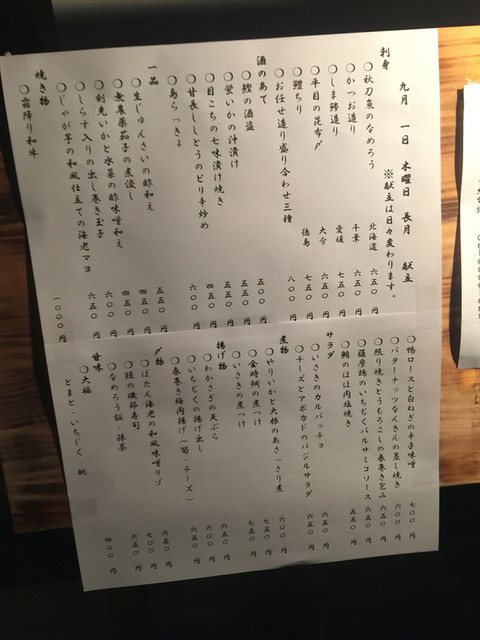 九月 一日 木曜日 長月 献立
※献立は日々変わります。
刺身
○秋刀魚のなめろう 北海道 六五〇円
○かつお造り 千葉 六五〇円
○しま鯵造り 愛媛 七五〇円
○平目の昆布〆 大分 六五〇円
○鱧ちり 徳島 七五〇円
○お任せ造り盛り合わせ三種 八〇〇円
酒のあて
○鰹の酒盗 五〇〇円
○蛍いかの沖漬け 五五〇円
○目こちの七味漬け焼き 五五〇円
○甘長ししとうのピリ辛炒め 四五〇円
○島らっきょ 六〇〇円
一品
○生じゅんさいの酢和え 五五〇円
○無農薬茄子の煮浸し 四五〇円
○剣先いかと水菜の酢味噌和え 四五〇円
○しらす入りの出し巻き玉子 六五〇円
○じゃが芋の和風仕立ての海老マヨ 六〇〇円
焼き物
○霜降り和牛 一〇〇〇円
○鴨ロースと白ねぎの辛子味噌 七〇〇円
○バターナッツなんきんの蒸し焼き 六〇〇円
○照り焼きとうもろこしの春巻き包み 六五〇円
○薩摩鶏のいちぢくバルサミコソース 六五〇円
○鮪のほほ肉塩焼き 五五〇円
サラダ
○いさきのカルパッチョ 六五〇円
○チーズとアボカドのバジルサラダ 六五〇円
煮物
○やりいかと大根のあっさり煮 六〇〇円
○金時鯛の煮つけ 七五〇円
○いさきの煮つけ 七五〇円
揚げ物
○わかさぎの天ぷら 六五〇円
○いちぢくの揚げ出し 六〇〇円
○春巻き梅肉揚げ(筍・チーズ) 六五〇円
〆物
○ぼたん海老の和風味噌リゾ 六五〇円
○鰻の磯部寿司 七〇〇円
○なめろう飯・抹茶 六五〇円
甘味
○大福 四〇〇円
とまと・いちじく・桃